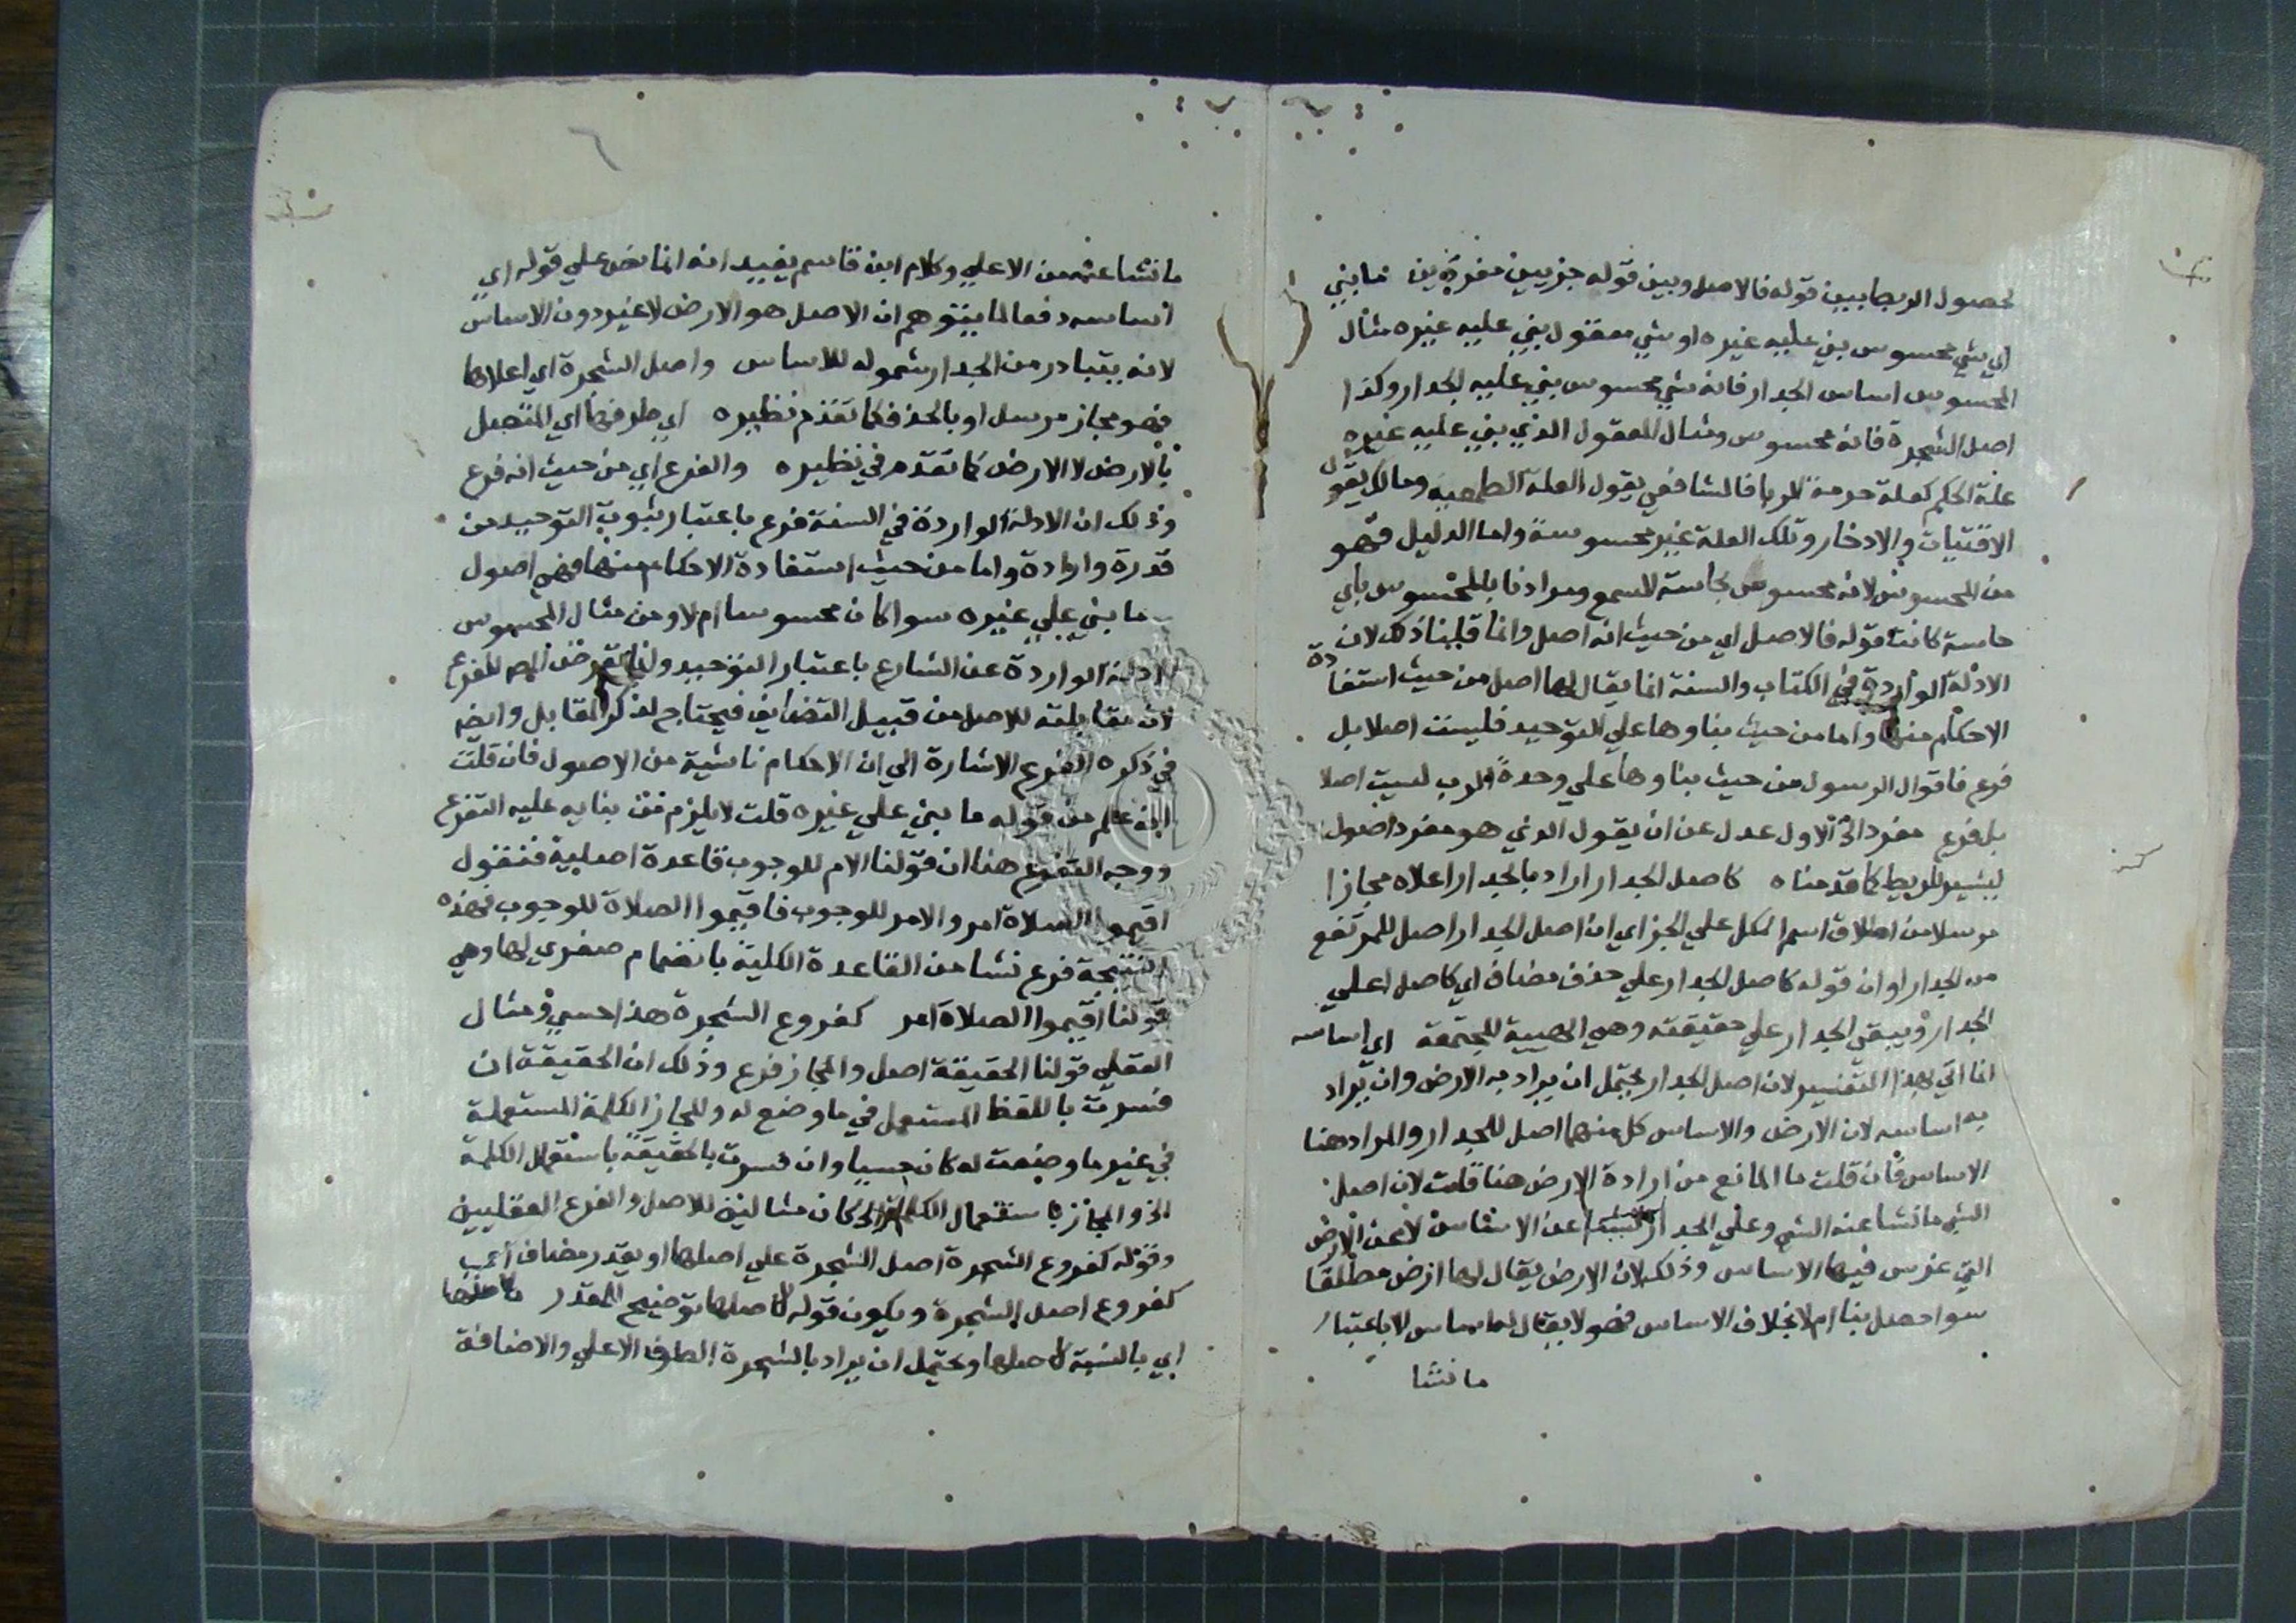 لحصول الربط بين قوله فالاصل وبين قوله جزيين مفردين ما بني
اي شي محسوس بني عليه غيره او شي معقول بني عليه غيره مثال
المحسوس اساس الجدار فانه شي محسوس بني عليه الجدار وكذا
اصل الشجرة فانه محسوس ومثال المعقول الذي بني عليه غيره
علة الحكم كعلة حرمة الربا فالشافعي يقول العلة الطعمية ومالك يقول
الاقتيات والادخار وتلك العلة غير محسوسة واما الدليل فهو
من المحسوس لانه محسوس بحاسة السمع ومرادنا بالمحسوس باي
حاسة كانت قوله فالاصل اي من حيث انه اصل وانما قلنا ذلك لان
الادلة الواردة في الكتاب والسنة انما يقال لها اصل من حيث استفادة
الاحكام منها واما من حيث بناوها علي التوحيد فليست اصلا بل
فرع فاقوال الرسول من حيث بناوها علي وحدة الرب ليست اصلا
بل فرع مفرد الاول عدل عن ان يقول الذي هو مفرد اصول
ليشير للربط كما قدمناه كاصل الجدار اراد بالجدار اعلاه مجازا
مرسلا من اطلاق اسم الكل علي الجز اي ان اصل الجدار اصل للمرتفع
من الجدار او ان قوله كاصل الجدار علي حذف مضاف اي كاصل اعلي
الجدار ويبقي الجدار علي حقيقته وهي الهيية المجتمعة اي اساسه
انما اتي بهذا التفسير لان اصل الجدار يحتمل ان يراد به الارض وان يراد
به اساسه لان الارض والاساس كل منهما اصل للجدار والمراد هنا
الاساس فان قلت ما المانع من ارادة الارض هنا قلت لان اصل
الشي ما نشا عنه الشي وعلي الجدار عن الاساس لا عن الارض
التي غرس فيها الاساس وذلك لان الارض يقال لها ارض مطلقا
سوا حصل بنا ام لا بخلاف الاساس فهو لا يقال له اساس الا باعتبار
ما نشا
٦
ما نشا عنه من الاعلي وكلام ابن قاسم يفيد انه انما نص علي قوله اي
اساسه دفعا لما يتوهم ان الاصل هو الارض لا غير دون الاساس
لانه يتبادر من الجدار شموله للاساس واصل الشجرة اي اعلاها
فهو مجاز مرسل او بالحذف كما تقدم نظيره اي طرفها اي المتصل
بالارض لا الارض كما تقدم في نظيره والفرع اي من حيث انه فرع
وذلك ان الادلة الواردة في السنة فرع باعتبار ثبوت التوحيد من
قدرة وارادة واما من حيث استفادة الاحكام منها فهي اصول
ما بني علي غيره سوا كان محسوسا ام لا ومن مثال المحسوس
الادلة الواردة عن الشارع باعتبار التوحيد وانما تعرض المص للفرع
لان مقابلته للاصل من قبيل التضايف فيحتاج لذكر المقابل وايضا
في ذكره الفرع الاشارة الي ان الاحكام ناشية من الاصول فان قلت
انه علم من قوله ما بني علي غيره قلت لا يلزم من بنايه عليه التفرع
ووجه التفرع هنا ان قولنا الامر للوجوب قاعدة اصلية فنقول
اقيموا الصلاة امر والامر للوجوب فاقيموا الصلاة للوجوب فهذه
النتيجة فرع نشا من القاعدة الكلية بانضمام صغري لها وهي
قولنا اقيموا الصلاة امر كفروع الشجرة هذا حسي ومثال
العقلي قولنا الحقيقة اصل والمجاز فرع وذلك ان الحقيقة ان
فسرت باللفظ المستعمل في ما وضع له والمجاز الكلمة المستعملة
في غير ما وضعت له كان حسيا وان فسرت بالحقيقة باستعمال الكلمة
الخ والمجاز باستعمال الكلمة الخ كان مثالين للاصل والفرع العقليين
وقوله كفروع الشجرة اصل الشجرة علي اصلها او يقدر مضاف اي
كفروع اصل الشجرة ويكون قوله لاصلها توضيح للمقدر لاصلها
اي بالنسبة لاصلها ويحتمل ان يراد بالشجرة الطرف الاعلي والاضافة